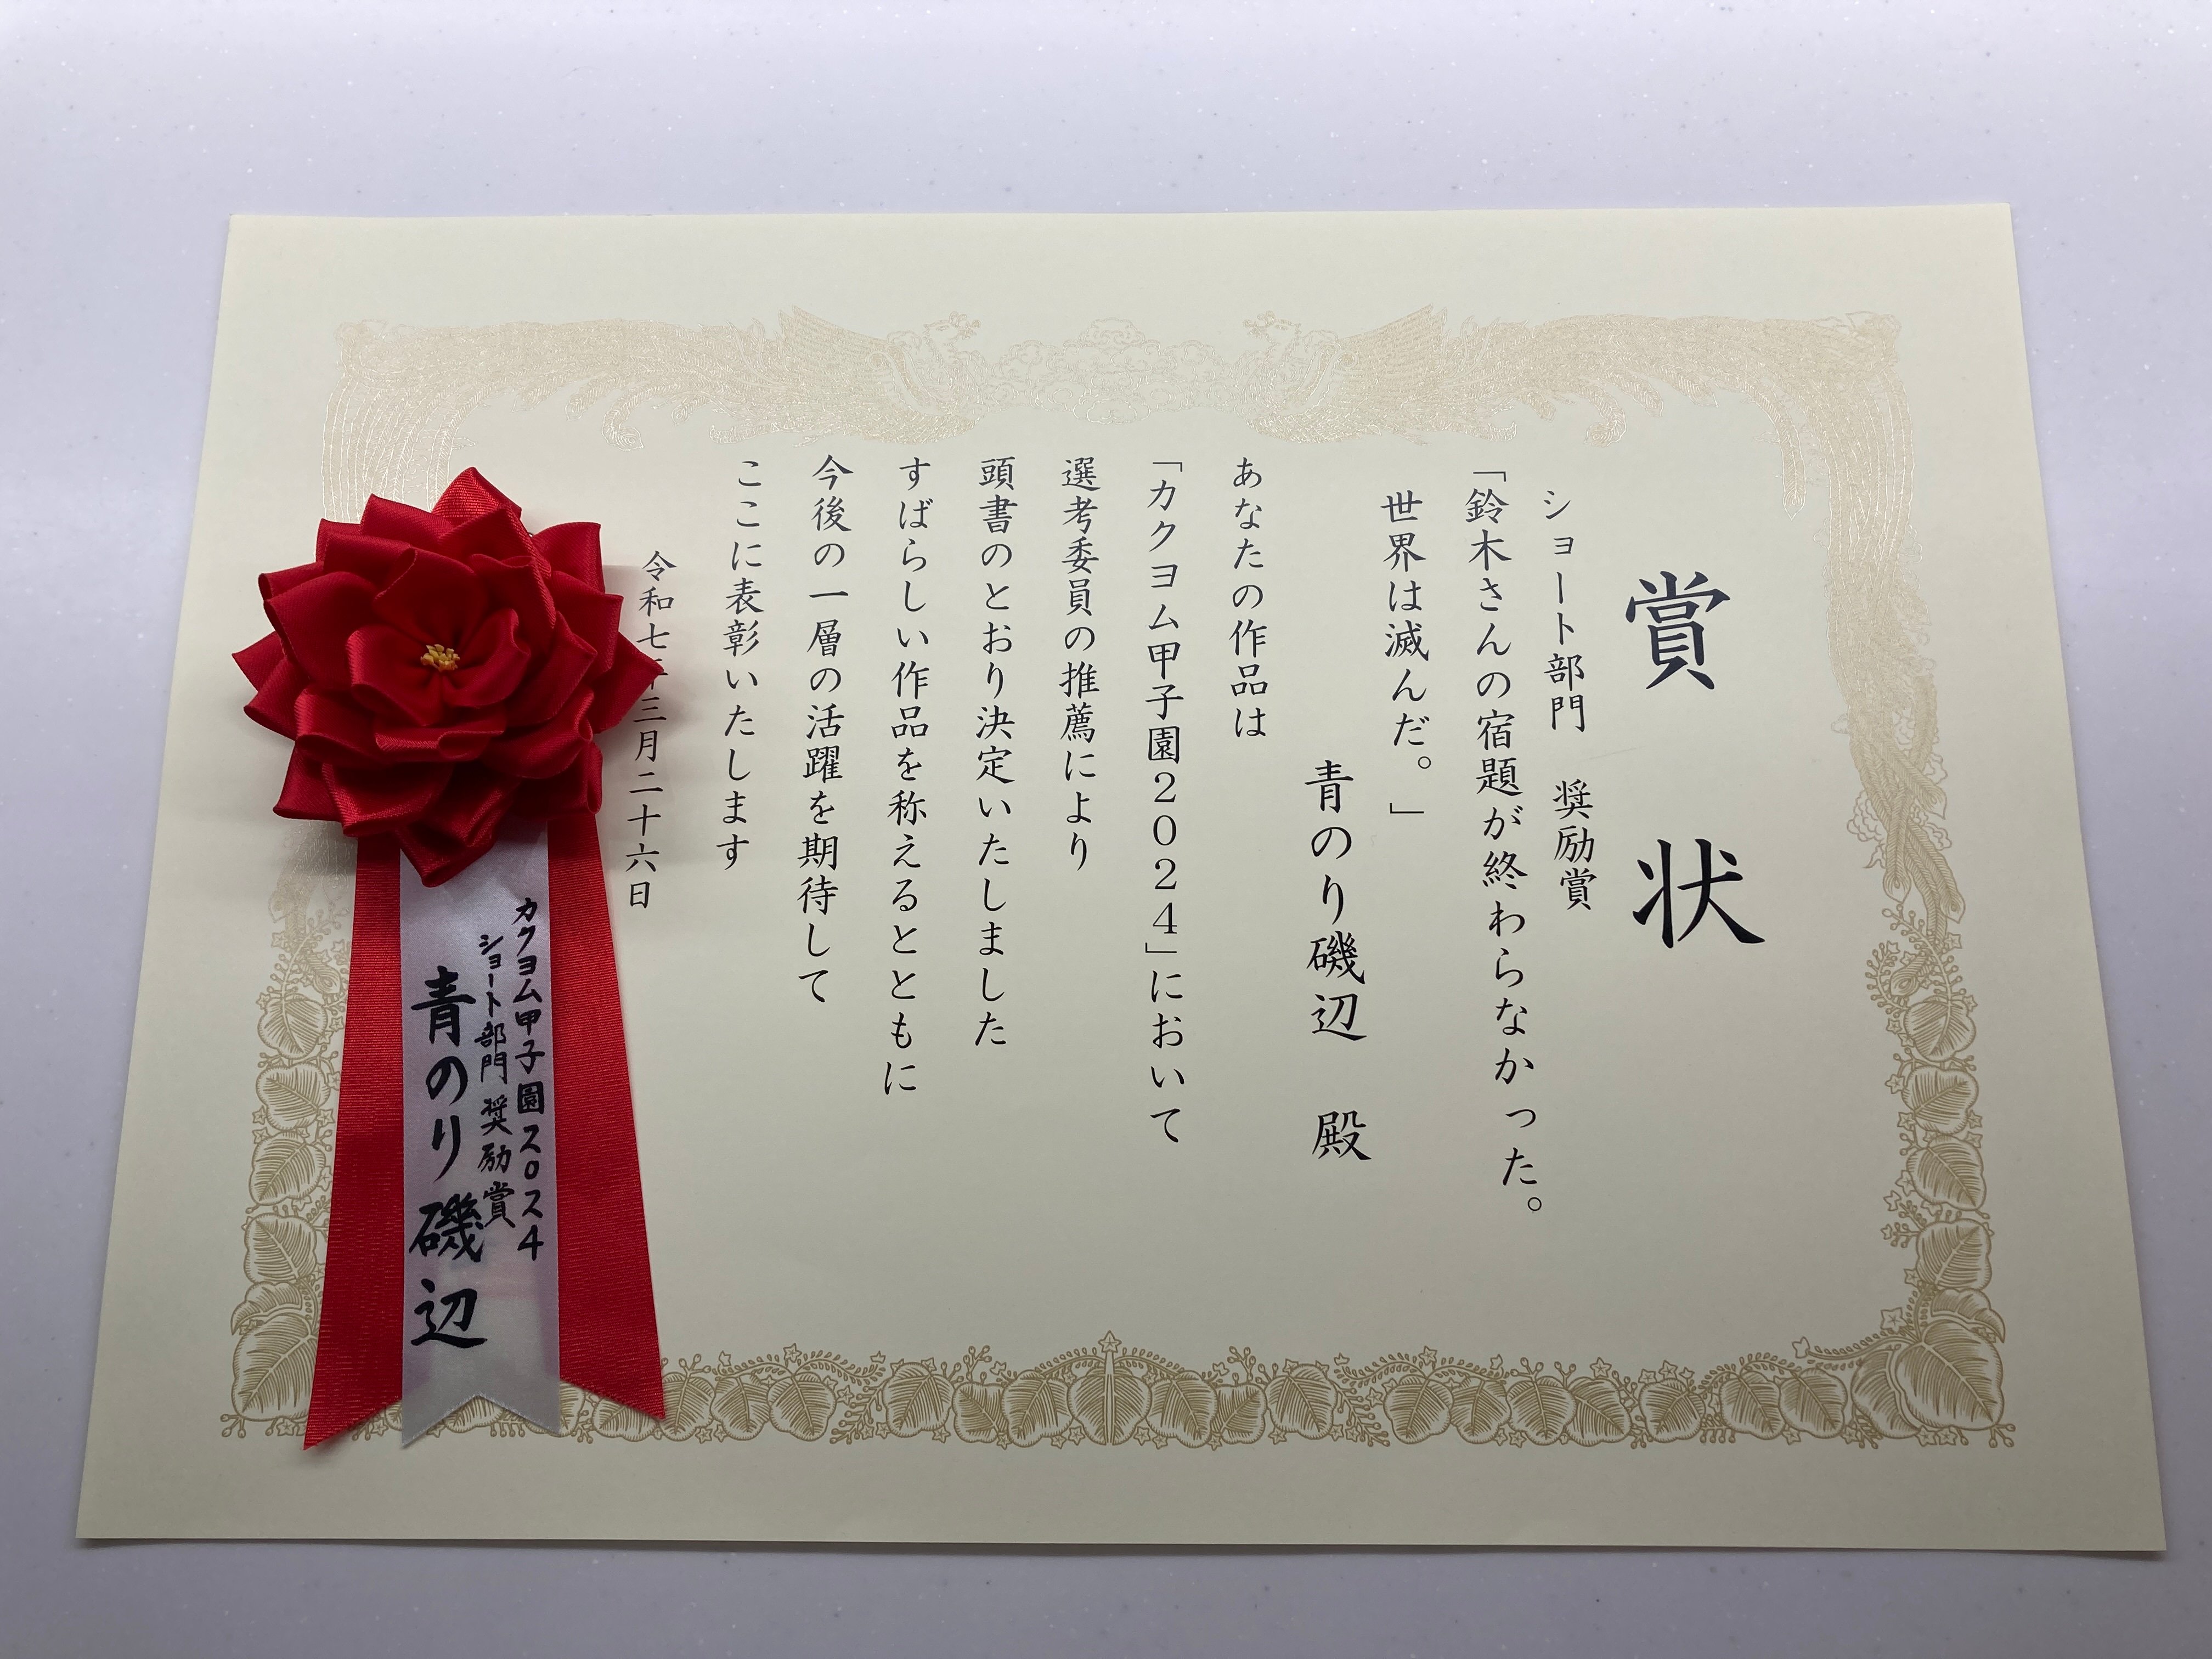 賞状
ショート部門　奨励賞
「鈴木さんの宿題が終わらなかった。
世界は滅んだ。」
青のり磯辺　殿
あなたの作品は
「カクヨム甲子園2024」において
選考委員の推薦により
頭書のとおり決定いたしました
すばらしい作品を称えるとともに
今後の一層の活躍を期待して
ここに表彰いたします
令和七年三月二十六日
カクヨム甲子園2024
ショート部門 奨励賞
青のり磯辺